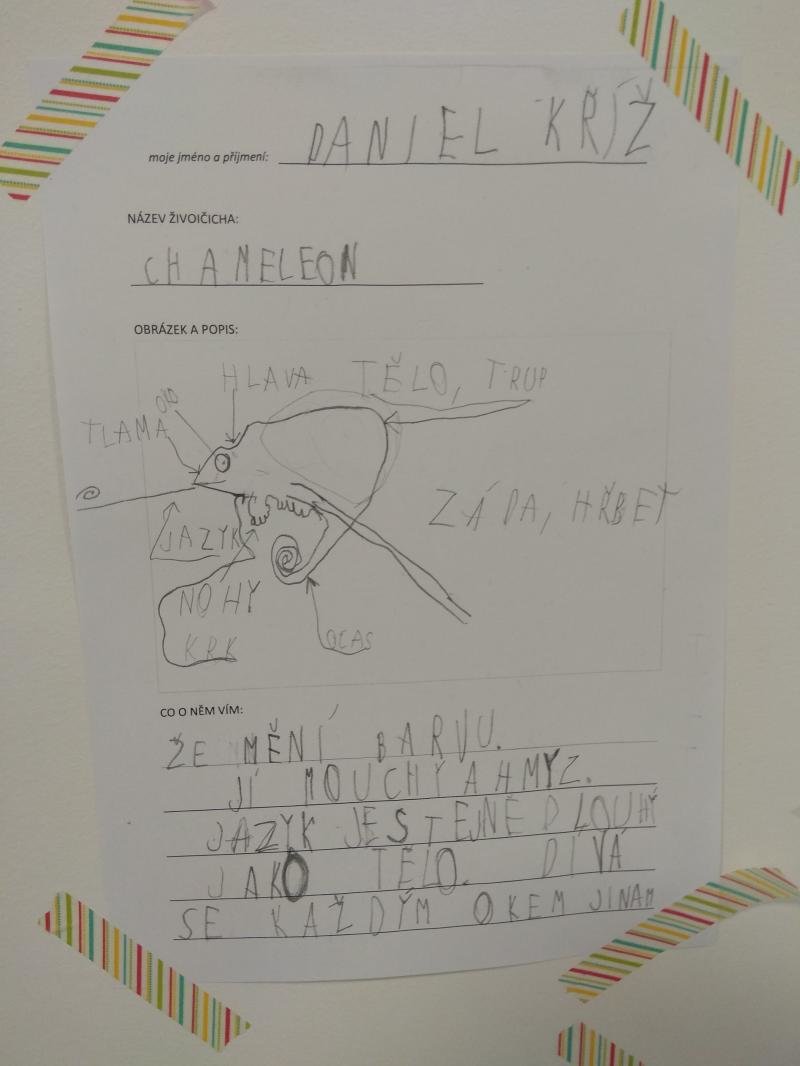 moje jméno a příjmení: DANIEL KŘÍŽ
NÁZEV ŽIVOIČICHA:
CHAMELEON
OBRÁZEK A POPIS:
HLAVA TĚLO, TRUP
OKO
TLAMA
ZÁDA, HŘBET
JAZYK
NOHY
KRK
OCAS
CO O NĚM VÍM:
ŽE MĚNÍ BARVU.
JÍ MOUCHY A HMYZ.
JAZYK JE STEJNĚ DLOUHÝ
JAKO TĚLO. DÍVÁ
SE KAŽDÝM OKEM JINAM